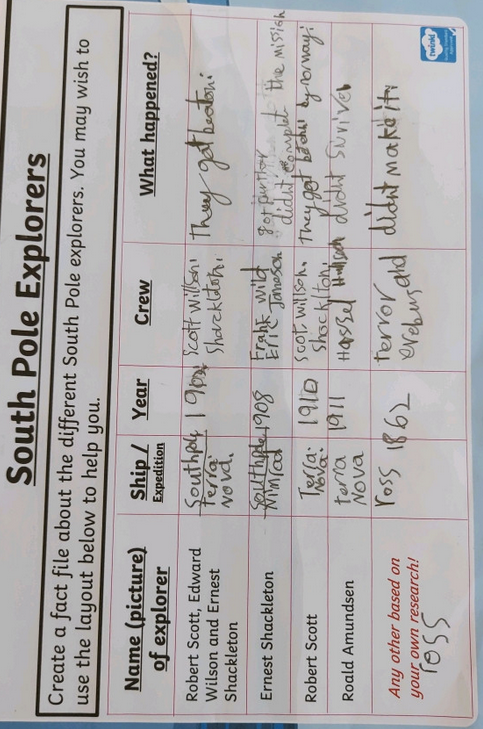 South Pole Explorers
Create a fact file about the different South Pole explorers. You may wish to
use the layout below to help you.
Name (picture) of explorer
Ship / Expedition
Year
Crew
What happened?
Robert Scott, Edward
Wilson and Ernest
Shackleton
Southpole
terra
nova.
Scott willson
Sharckleton.
They got beaten
Ernest Shackleton
Nimrod
1908
Frank wild
Eric Jameson
got further
didnt complet the mission
Robert Scott
Terra
Nova.
1910
Scott, willson,
Shackilton,
They got beten by norway
Roald Amundsen
terra
Nova
1911
Hassel
didnt Surive
Any other based on
your own research!
ross
ross
1862
terror and
erebus
didnt make it
twinkl